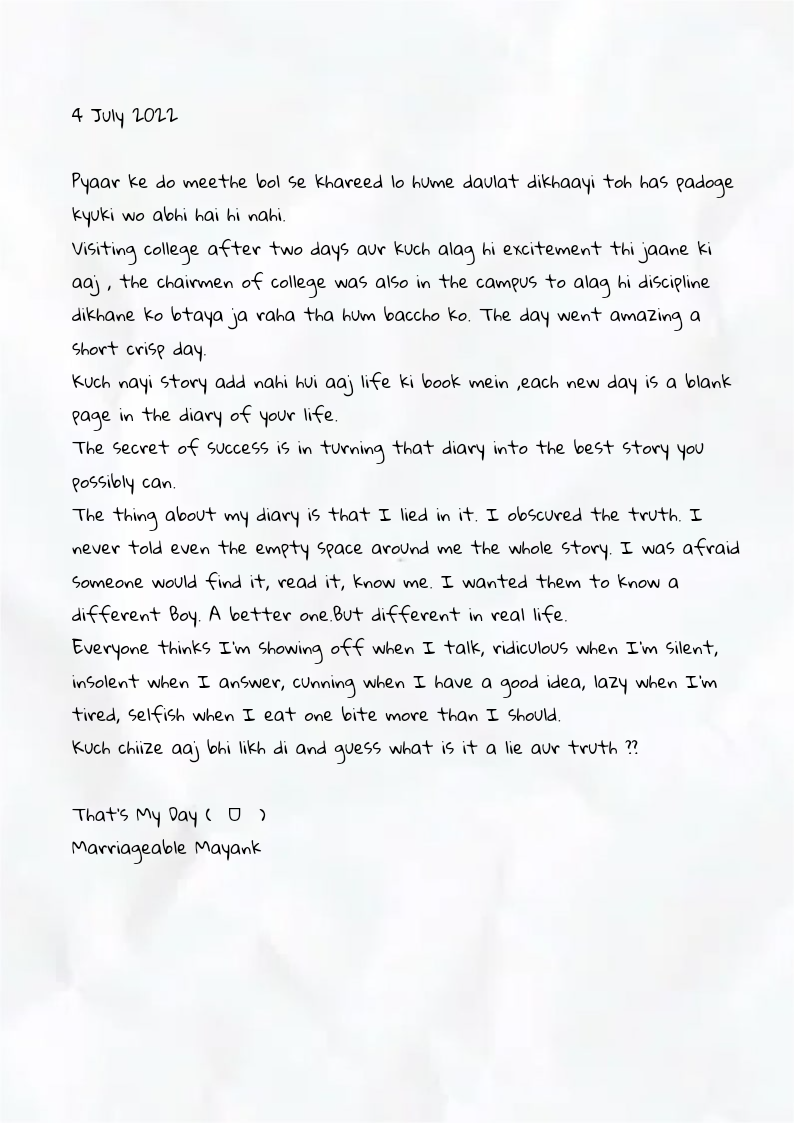 4 July 2022
Pyaar ke do meethe bol se khareed lo hume daulat dikhaayi toh has padoge
kyuki wo abhi hai hi nahi.
Visiting college after two days aur kuch alag hi excitement thi jaane ki
aaj , the chairmen of college was also in the campus to alag hi discipline
dikhane ko btaya ja raha tha hum baccho ko. The day went amazing a
short crisp day.
Kuch nayi story add nahi hui aaj life ki book mein ,each new day is a blank
page in the diary of your life.
The secret of success is in turning that diary into the best story you
possibly can.
The thing about my diary is that I lied in it. I obscured the truth. I
never told even the empty space around me the whole story. I was afraid
someone would find it, read it, know me. I wanted them to know a
different Boy. A better one.But different in real life.
Everyone thinks I'm showing off when I talk, ridiculous when I'm silent,
insolent when I answer, cunning when I have a good idea, lazy when I'm
tired, selfish when I eat one bite more than I should.
Kuch chiize aaj bhi likh di and guess what is it a lie aur truth ??
That's My Day ( ▽ )
Marriageable Mayank